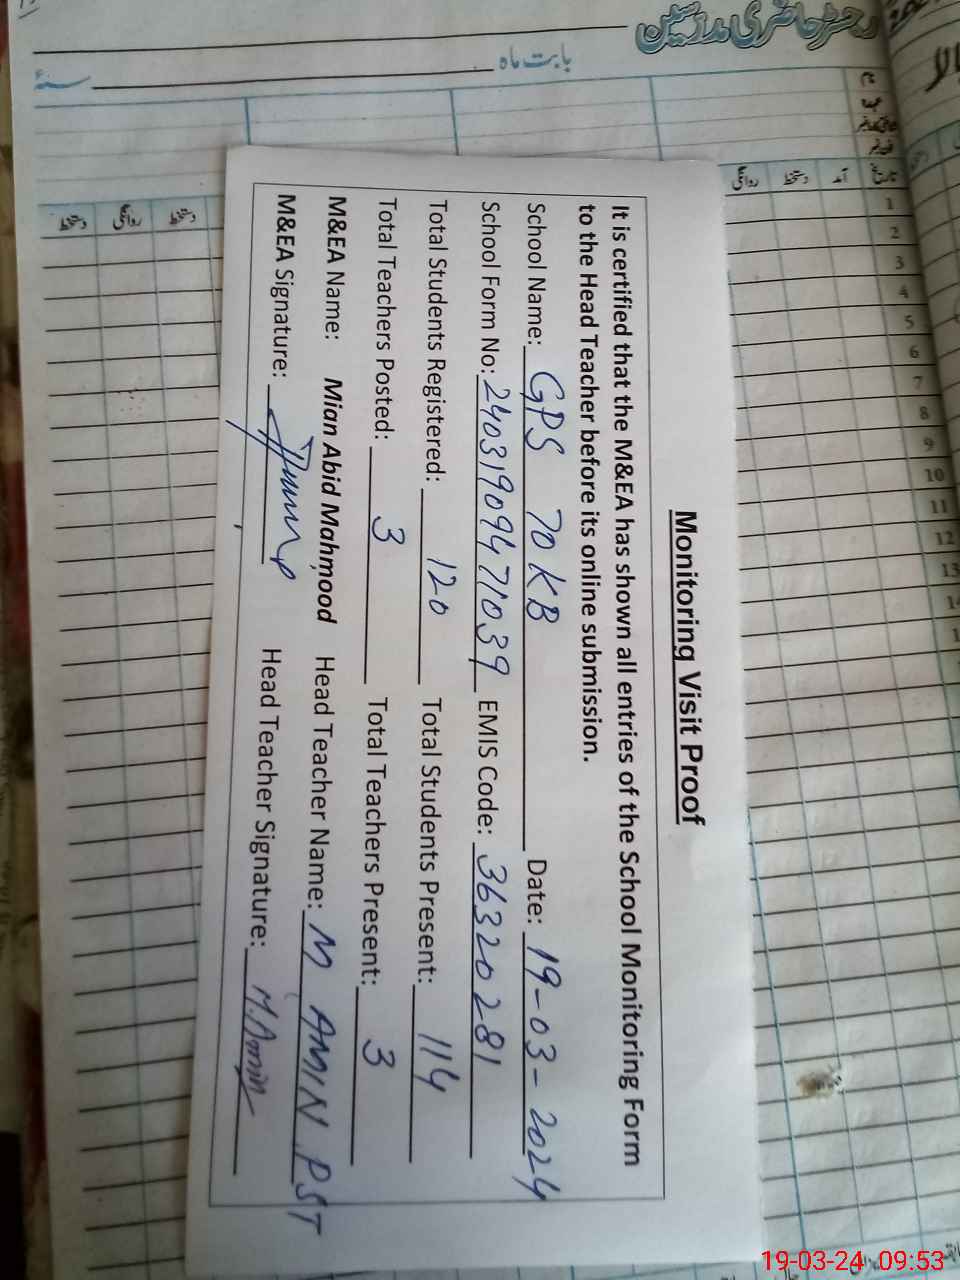 رجسٹر حاضری مدرسین
بابت ماہ
سنہ
Monitoring Visit Proof
It is certified that the M&EA has shown all entries of the School Monitoring Form
to the Head Teacher before its online submission.
School Name: GPS 70 KB Date: 19-03-2024
School Form No: 24031909471039 EMIS Code: 36320281
Total Students Registered: 120 Total Students Present: 114
Total Teachers Posted: 3 Total Teachers Present: 3
M&EA Name: Mian Abid Mahmood Head Teacher Name: M AMIN PST
M&EA Signature: Head Teacher Signature: M.Amin
تاریخ آمد دستخط روانگی
1
2
3
4
5
6
7
8
9
10
11
12
13
دستخط روانگی دستخط
19-03-24 09:53